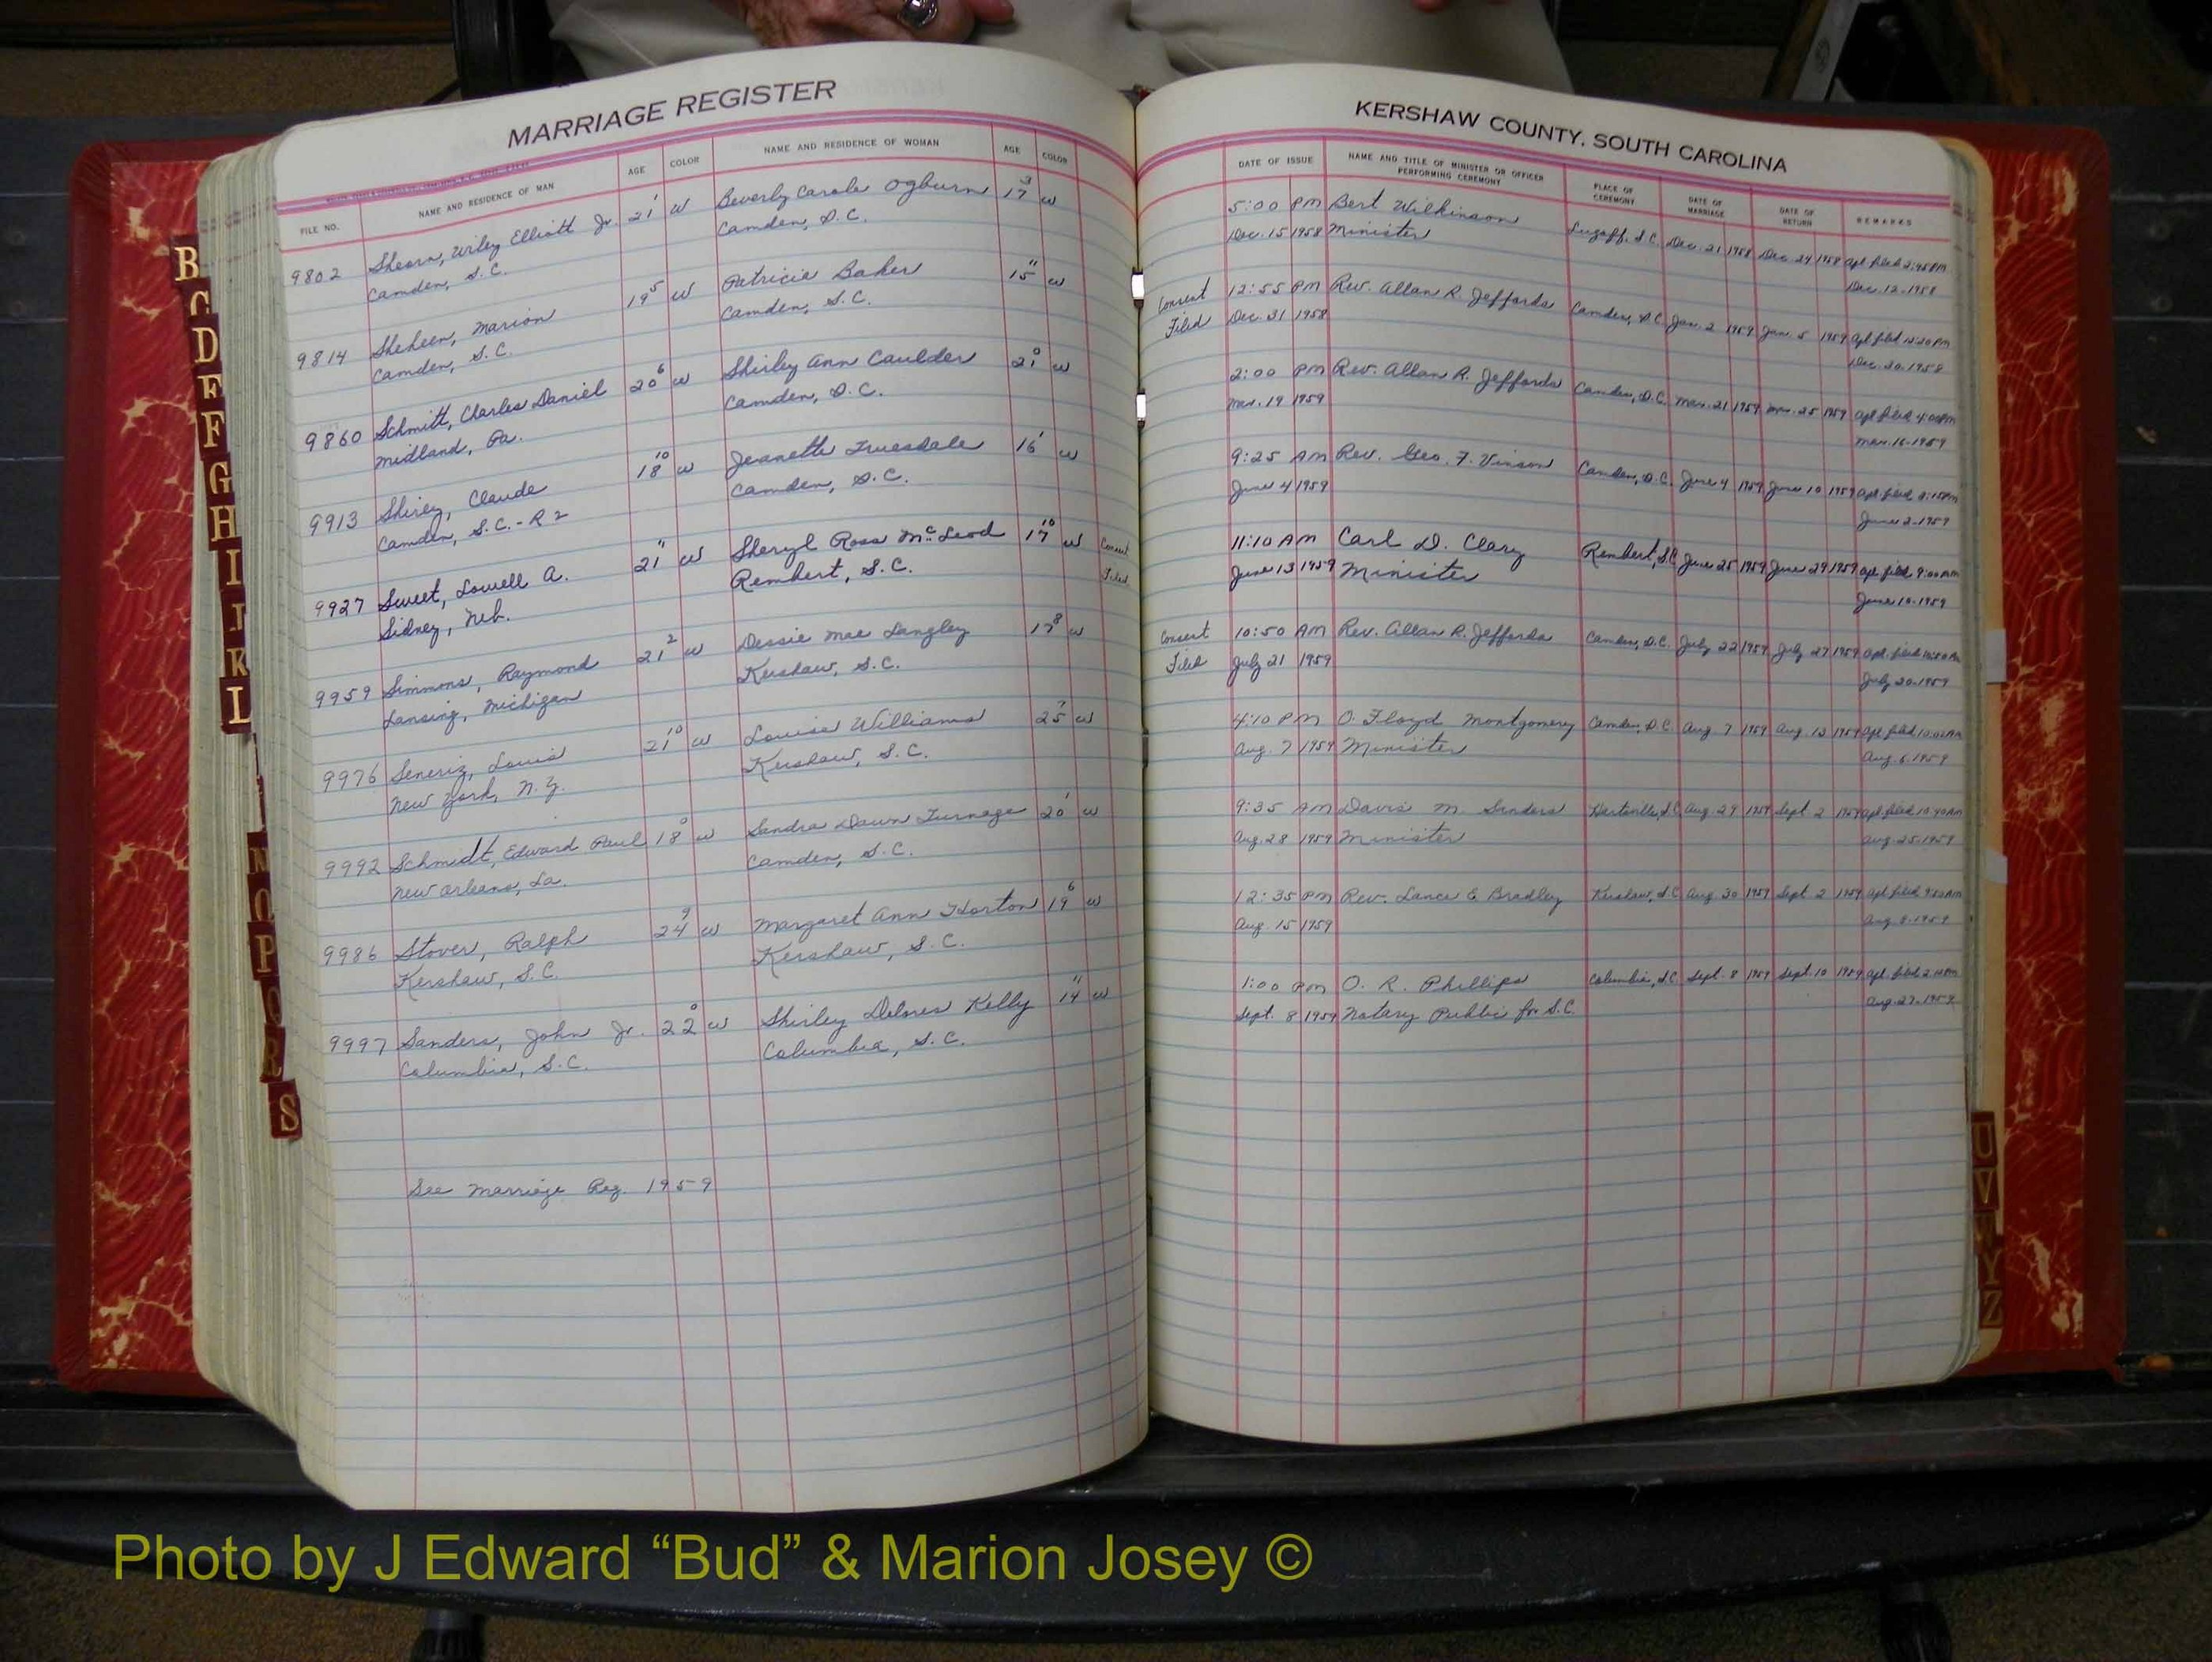 MARRIAGE REGISTER
FILE NO. NAME AND RESIDENCE OF MAN AGE COLOR NAME AND RESIDENCE OF WOMAN AGE COLOR
9802 Shearn, Wiley Elliott Jr. 21 1 W Beverly Carole Ogburn 17 3 W
Camden, S.C. Camden, S.C.
9814 Sheheen, Marion 19 5 W Patricia Baker 15 11 W
Camden, S.C. Camden, S.C.
9860 Schmitt, Charles Daniel 20 6 W Shirley Ann Caulder 21 0 W
Midland, Pa. Camden, S.C.
9913 Shirey, Claude 18 10 W Jeanette Truesdale 16 1 W
Camden, S.C. - R 2 Camden, S.C.
9927 Sweet, Lowell A. 21 11 W Sheryl Ross McLeod 17 10 W Consent
Sidney, Neb. Rembert, S.C. Filed
9959 Simmons, Raymond 21 2 W Dessie Mae Langley 17 8 W
Lansing, Michigan Kershaw, S.C.
9976 Seneriz, Louis 21 10 W Louise Williams 25 7 W
New York, N.Y. Kershaw, S.C.
9992 Schmidt, Edward Paul 18 0 W Sandra Dawn Turnage 20 1 W
New Orleans, La. Camden, S.C.
9986 Stover, Ralph 24 9 W Margaret Ann Horton 19 6 W
Kershaw, S.C. Kershaw, S.C.
9997 Sanders, John Jr. 22 0 W Shirley Delores Kelly 14 11 W
Columbia, S.C. Columbia, S.C.
See Marriage Reg. 1959
KERSHAW COUNTY, SOUTH CAROLINA
DATE OF ISSUE NAME AND TITLE OF MINISTER OR OFFICER PERFORMING CEREMONY PLACE OF CEREMONY DATE OF MARRIAGE DATE OF RETURN REMARKS
5:00 PM Bert Wilkinson Lugoff, S.C. Dec. 21 1958 Dec. 24 1958 Apl. filed 2:45 PM
Dec. 15 1958 Minister Dec. 12-1958
Consent 12:55 PM Rev. Allan R. Jeffords Camden, S.C. Jan. 2 1959 Jan. 5 1959 Apl. filed 12:20 PM
Filed Dec. 31 1958 Dec. 30-1958
2:00 PM Rev. Allan R. Jeffords Camden, S.C. Mar. 21 1959 Mar. 25 1959 Apl. filed 4:00 PM
Mar. 19 1959 Mar. 16-1959
9:25 AM Rev. Geo. F. Vinson Camden, S.C. June 4 1959 June 10 1959 Apl. filed 2:15 PM
June 4 1959 June 2-1959
11:10 AM Carl D. Clary Rembert, S.C. June 25 1959 June 29 1959 Apl. filed 9:00 AM
June 13 1959 Minister June 10-1959
Consent 10:50 AM Rev. Allan R. Jeffords Camden, S.C. July 22 1959 July 27 1959 Apl. filed 10:50 AM
Filed July 21 1959 July 20-1959
4:10 PM O. Floyd Montgomery Camden, S.C. Aug. 7 1959 Aug. 13 1959 Apl. filed 10:02 AM
Aug. 7 1959 Minister Aug. 6-1959
9:35 AM Davis M. Sanders Hartsville, S.C. Aug. 29 1959 Sept 2 1959 Apl. filed 10:40 AM
Aug. 28 1959 Minister Aug. 25-1959
12:35 PM Rev. Lance E. Bradley Kershaw, S.C. Aug. 30 1959 Sept 2 1959 Apl. filed 9:50 AM
Aug. 15 1959 Aug. 8-1959
1:00 PM O. R. Phillips Columbia, S.C. Sept. 8 1959 Sept. 10 1959 Apl. filed
Sept. 8 1959 Notary Public for S.C. Aug. 27-1959
B
C
D
E
F
G
H
I
J
K
L
N
O
P
Q
R
S
U
V
W
Y
Z
Photo by J Edward “Bud” & Marion Josey ©